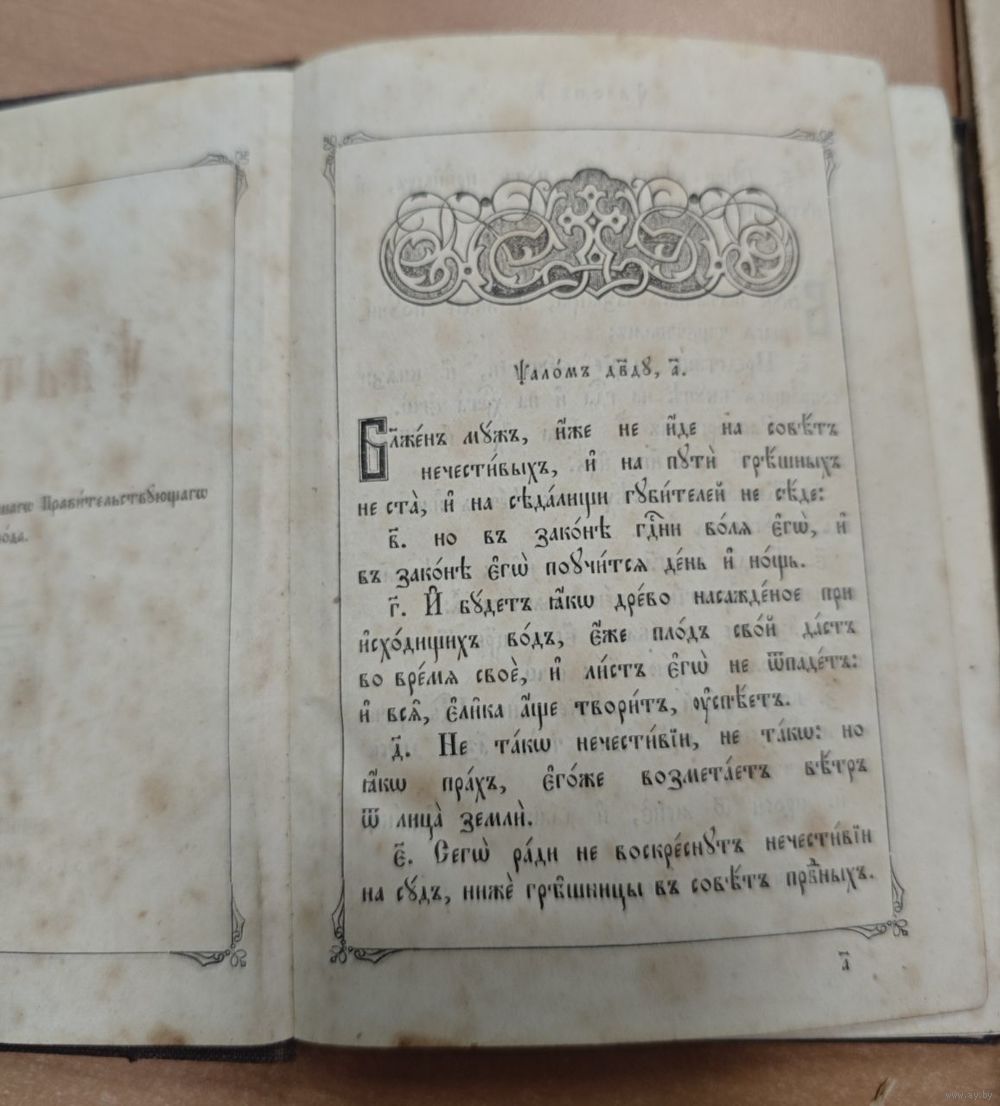 Правительствующагѡ
Ѱало́мъ дв҃ду, а҃.
Бл҃же́нъ мꙋжъ, и҆́же не и҆́де на совѣ́тъ
нечести́выхъ, и҆ на пꙋтѝ грѣ́шныхъ
не ста̀, и҆ на сѣда́лищи гꙋби́телей не сѣ́де:
в҃. но въ зако́нѣ гд҇ни во́лѧ є҆гѡ̀, и҆
въ зако́нѣ є҆гѡ̀ поꙋчи́тсѧ де́нь и҆ но́щь.
г҃. И҆ бꙋ́детъ ꙗ҆́кѡ дре́во насажде́ное при
и҆схо́дищихъ во́дъ, є҆́же пло́дъ сво́й да́стъ
во вре́мѧ своѐ, и҆ ли́стъ є҆гѡ̀ не ѿпаде́тъ:
и҆ всѧ̑, є҆ли̑ка а҆́ще твори́тъ, ᲂу҆спѣ́етъ.
д҃. Не та́кѡ нечести́вїи, не та́кѡ: но
ꙗ҆́кѡ пра́хъ, є҆го́же возмета́етъ вѣ́тръ
ѿ лица̀ землѝ.
є҃. Сегѡ̀ ра́ди не воскре́снꙋтъ нечести́вїи
на сꙋ́дъ, нижѐ грѣ̑шницы въ совѣ́тъ прв҇ныхъ.
а҃
www.ay.by